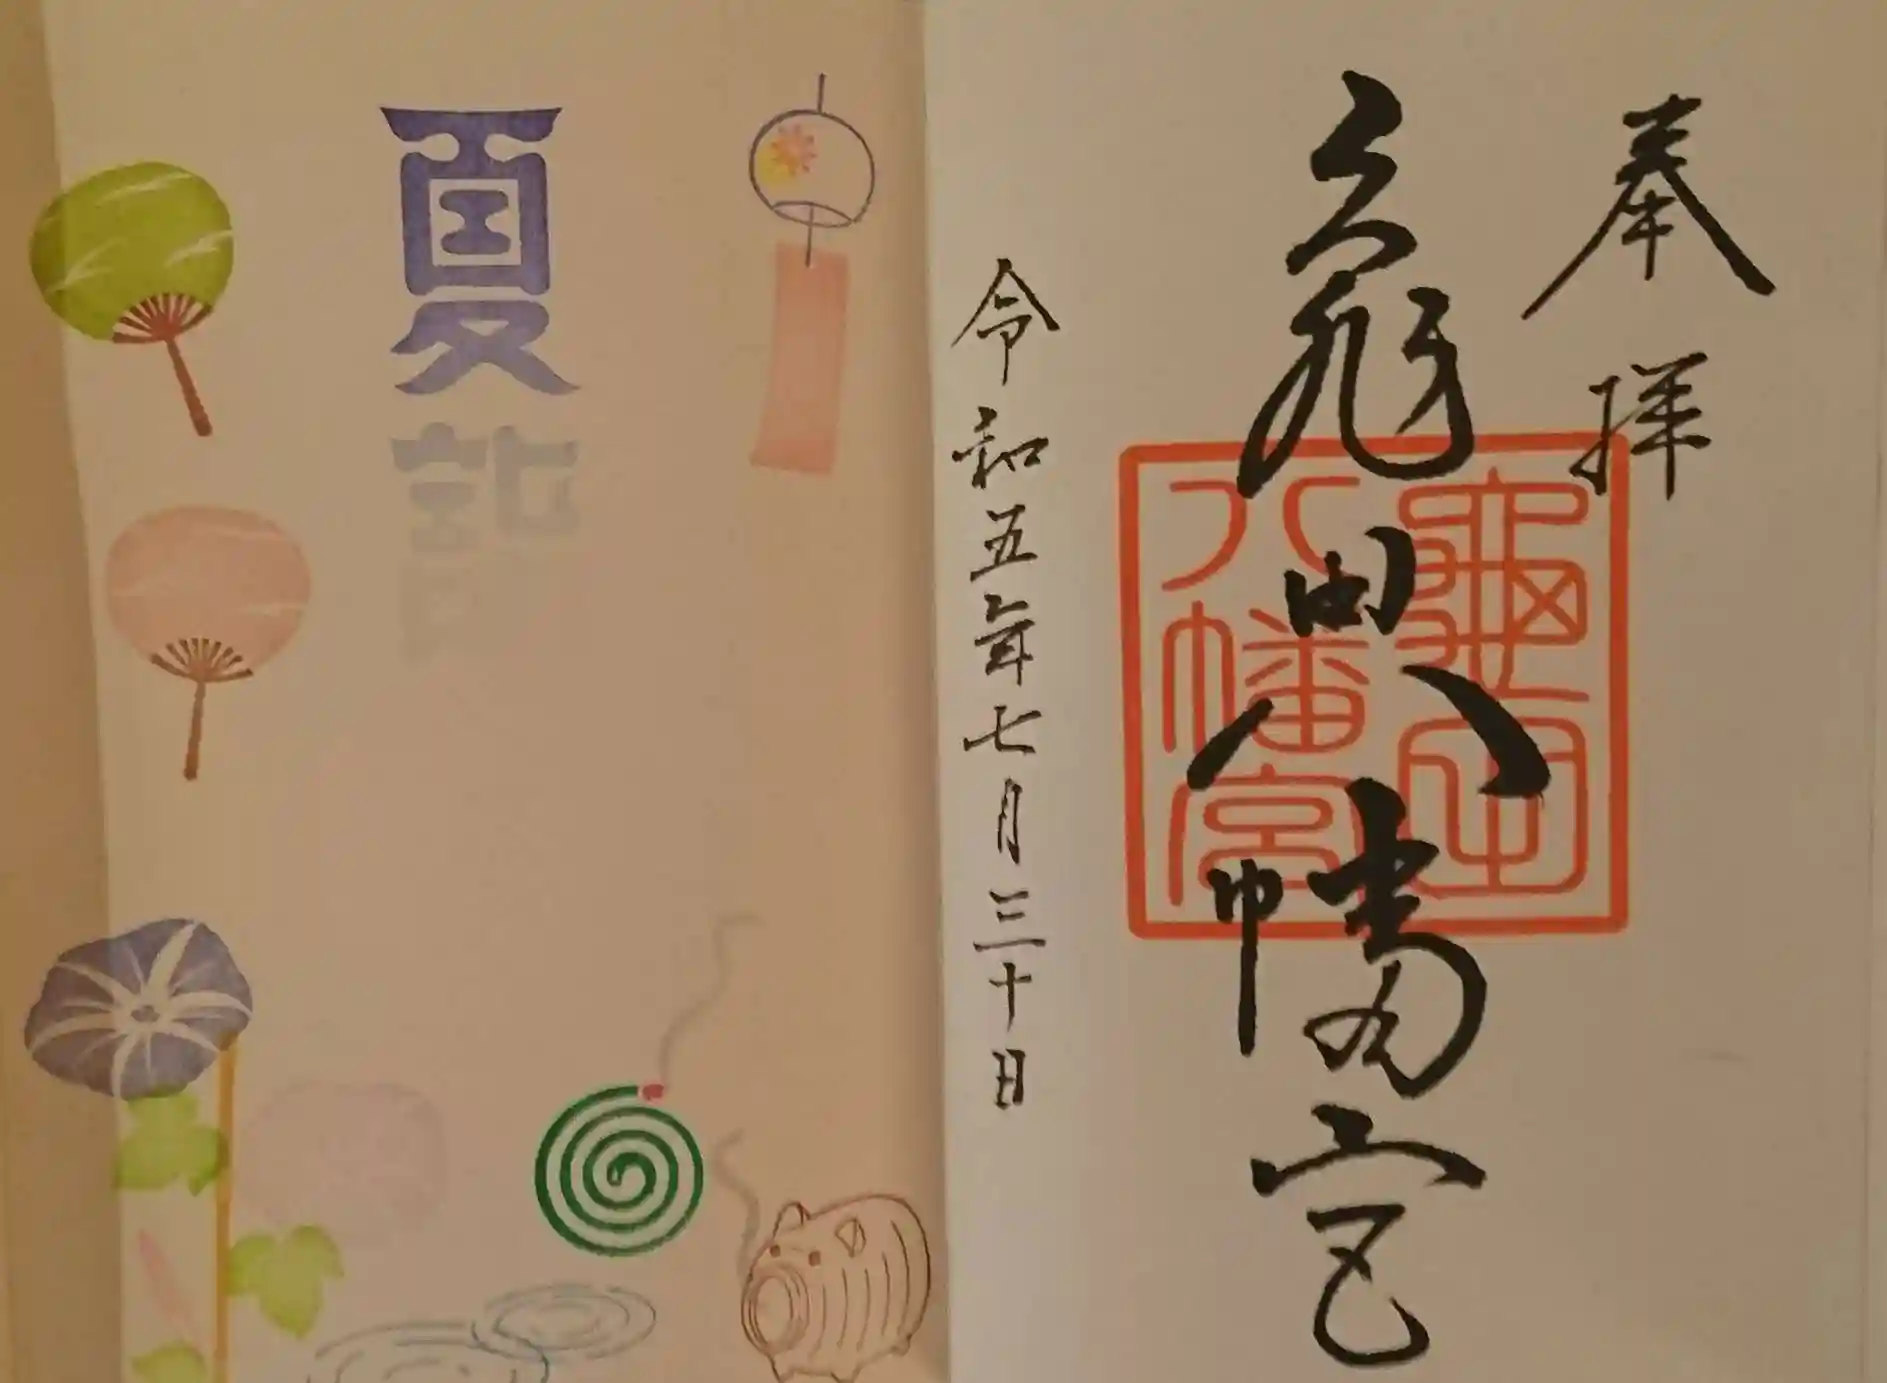 奉拝
龜田八幡宮
龜田
八幡宮
令和五年七月三十日
夏詣